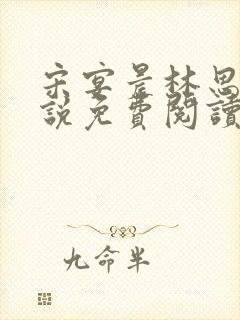 宋宴是林思
說免費閱讀
九命半